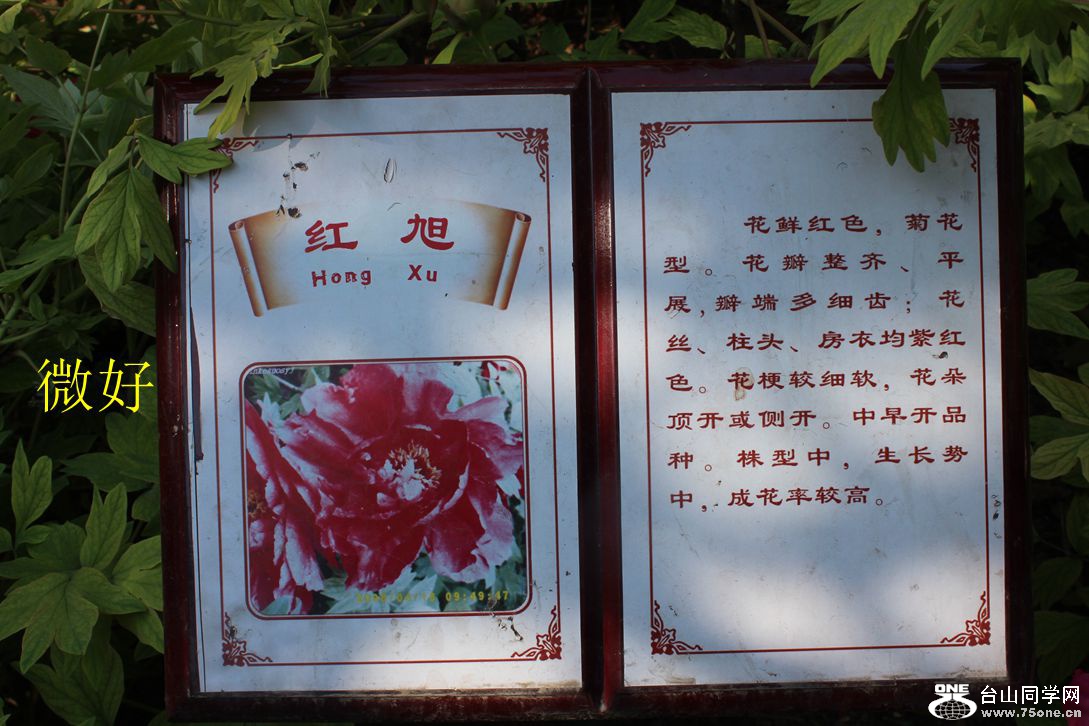 红 旭
Hong Xu
09:49:47
花鲜红色，菊花
型。花瓣整齐、平
展，瓣端多细齿；花
丝、柱头、房衣均紫红
色。花梗较细软，花朵
顶开或侧开。中早开品
种。株型中，生长势
中，成花率较高。
微好
ONE
台山同学网
www.75one.cn